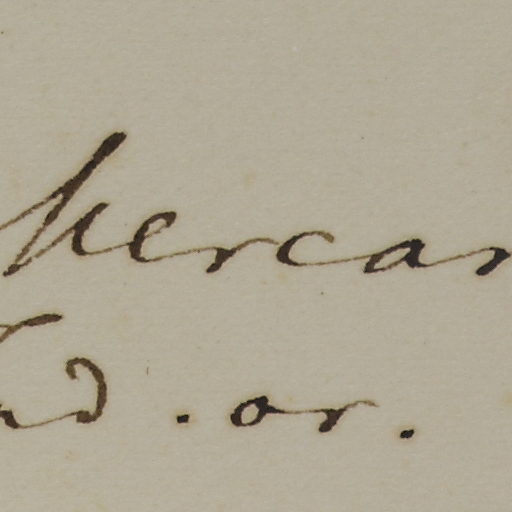 Mercar
Ind. or.